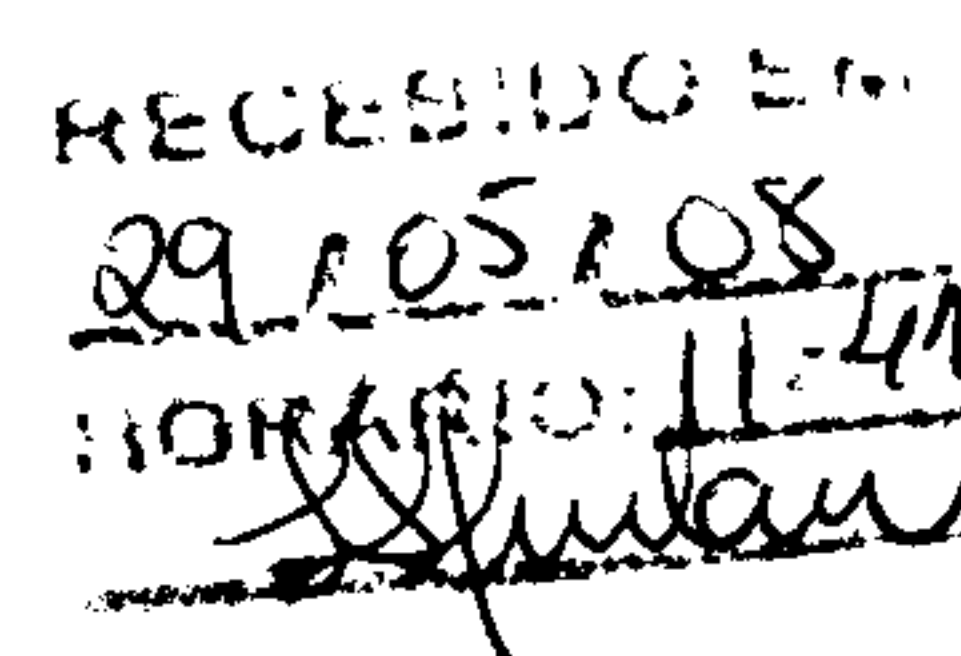 RECEBIDO EM
29/05/08
HORÁRIO: 11:41